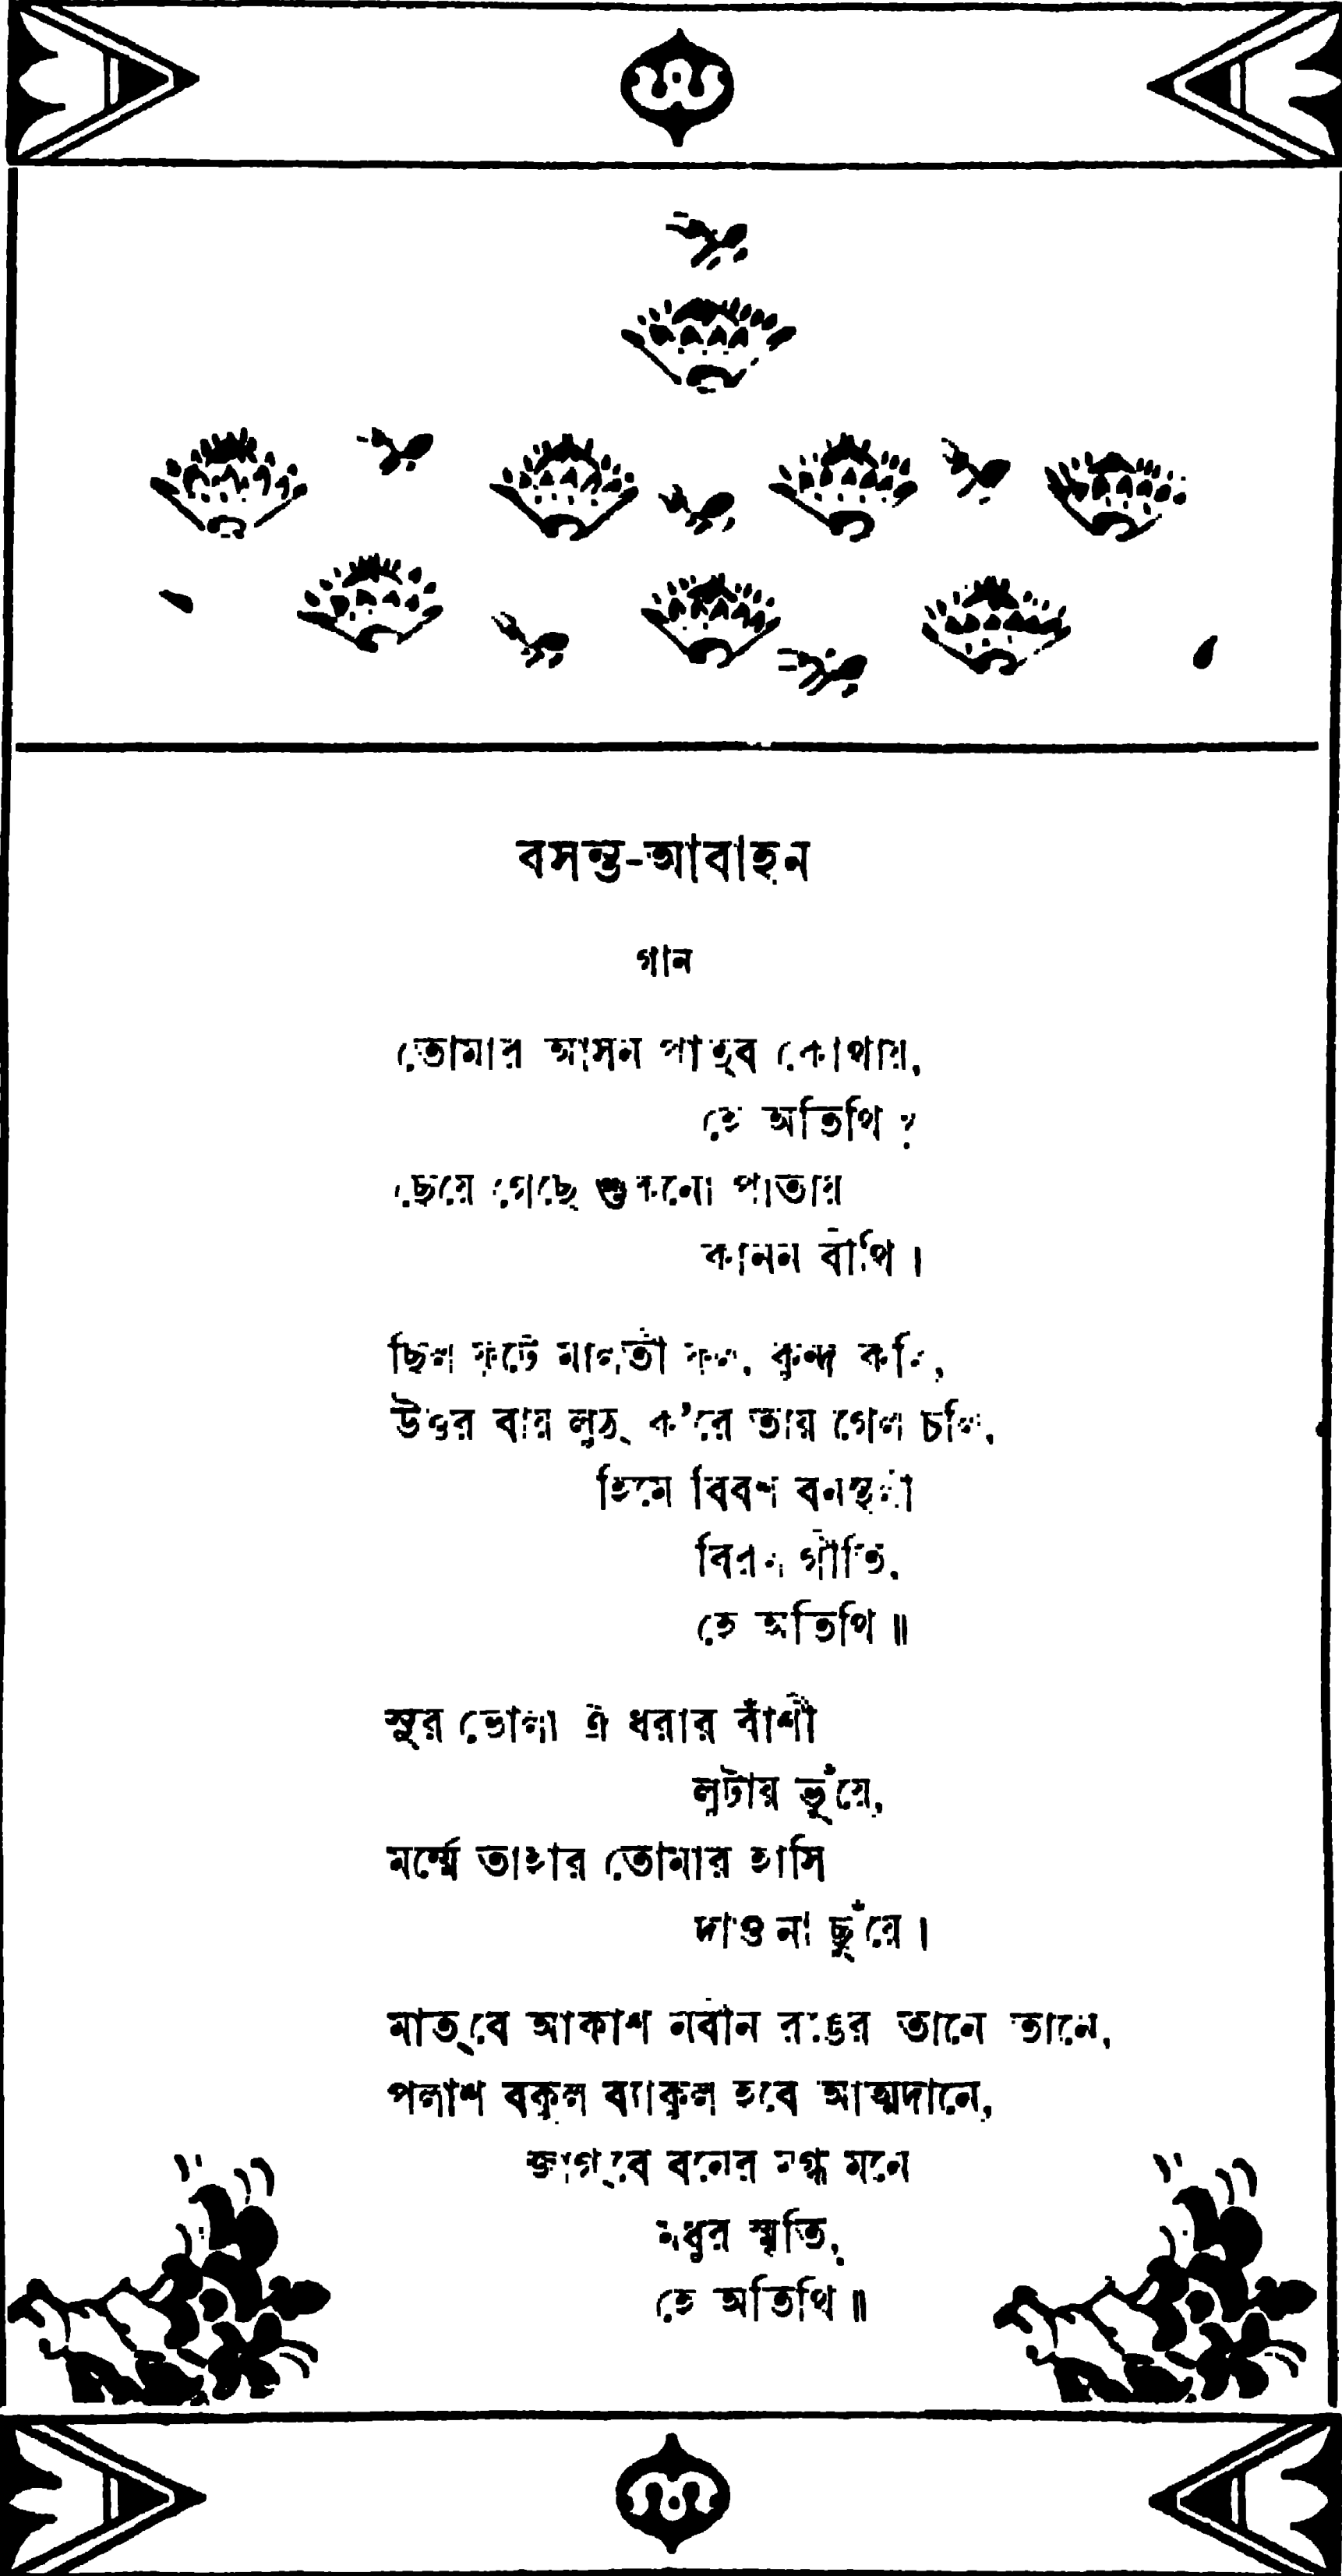 বসন্ত-আবাহন
গান
তোমার আসন পাত্‌ব কোথায়,
হে অতিথি ?
ছেয়ে গেছে শুকনো পাতায়
কানন বীথি ।
ছিল ফুটে মালতী ফুল, কুন্দ কলি,
উত্তর বায় লুঠ্‌ ক'রে তায় গেল চলি,
হিমে বিবশ বনস্থলী
বিরল গীতি,
হে অতিথি ॥
সুর ভোলা ঐ ধরার বাঁশী
লুটায় ভুঁয়ে,
মর্ম্মে তাহার তোমার হাসি
দাও না ছুঁয়ে ।
মাত্‌বে আকাশ নবীন রঙের তানে তানে,
পলাশ বকুল ব্যাকুল হবে আত্মদানে,
জাগ্‌বে বনের মুগ্ধ মনে
মধুর স্মৃতি,
হে অতিথি ॥